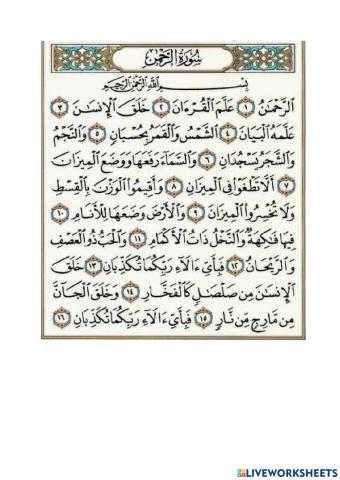 سُورَةُ الرَّحْمٰن
بِسْمِ اللَّهِ الرَّحْمَٰنِ الرَّحِيمِ
الرَّحْمَٰنُ ١ عَلَّمَ الْقُرْءَانَ ٢ خَلَقَ الْإِنسَٰنَ ٣
عَلَّمَهُ الْبَيَانَ ٤ الشَّمْسُ وَالْقَمَرُ بِحُسْبَانٍ ٥ وَالنَّجْمُ
وَالشَّجَرُ يَسْجُدَانِ ٦ وَالسَّمَاءَ رَفَعَهَا وَوَضَعَ الْمِيزَانَ
٧ أَلَّا تَطْغَوْا فِي الْمِيزَانِ ٨ وَأَقِيمُوا الْوَزْنَ بِالْقِسْطِ
وَلَا تُخْسِرُوا الْمِيزَانَ ٩ وَالْأَرْضَ وَضَعَهَا لِلْأَنَامِ ١٠
فِيهَا فَٰكِهَةٌ وَالنَّخْلُ ذَاتُ الْأَكْمَامِ ١١ وَالْحَبُّ ذُو الْعَصْفِ
وَالرَّيْحَانُ ١٢ فَبِأَيِّ ءَالَآءِ رَبِّكُمَا تُكَذِّبَانِ ١٣ خَلَقَ
الْإِنسَٰنَ مِن صَلْصَٰلٍ كَالْفَخَّارِ ١٤ وَخَلَقَ الْجَآنَّ
مِن مَّارِجٍ مِّن نَّارٍ ١٥ فَبِأَيِّ ءَالَآءِ رَبِّكُمَا تُكَذِّبَانِ ١٦
LIVEWORKSHEETS